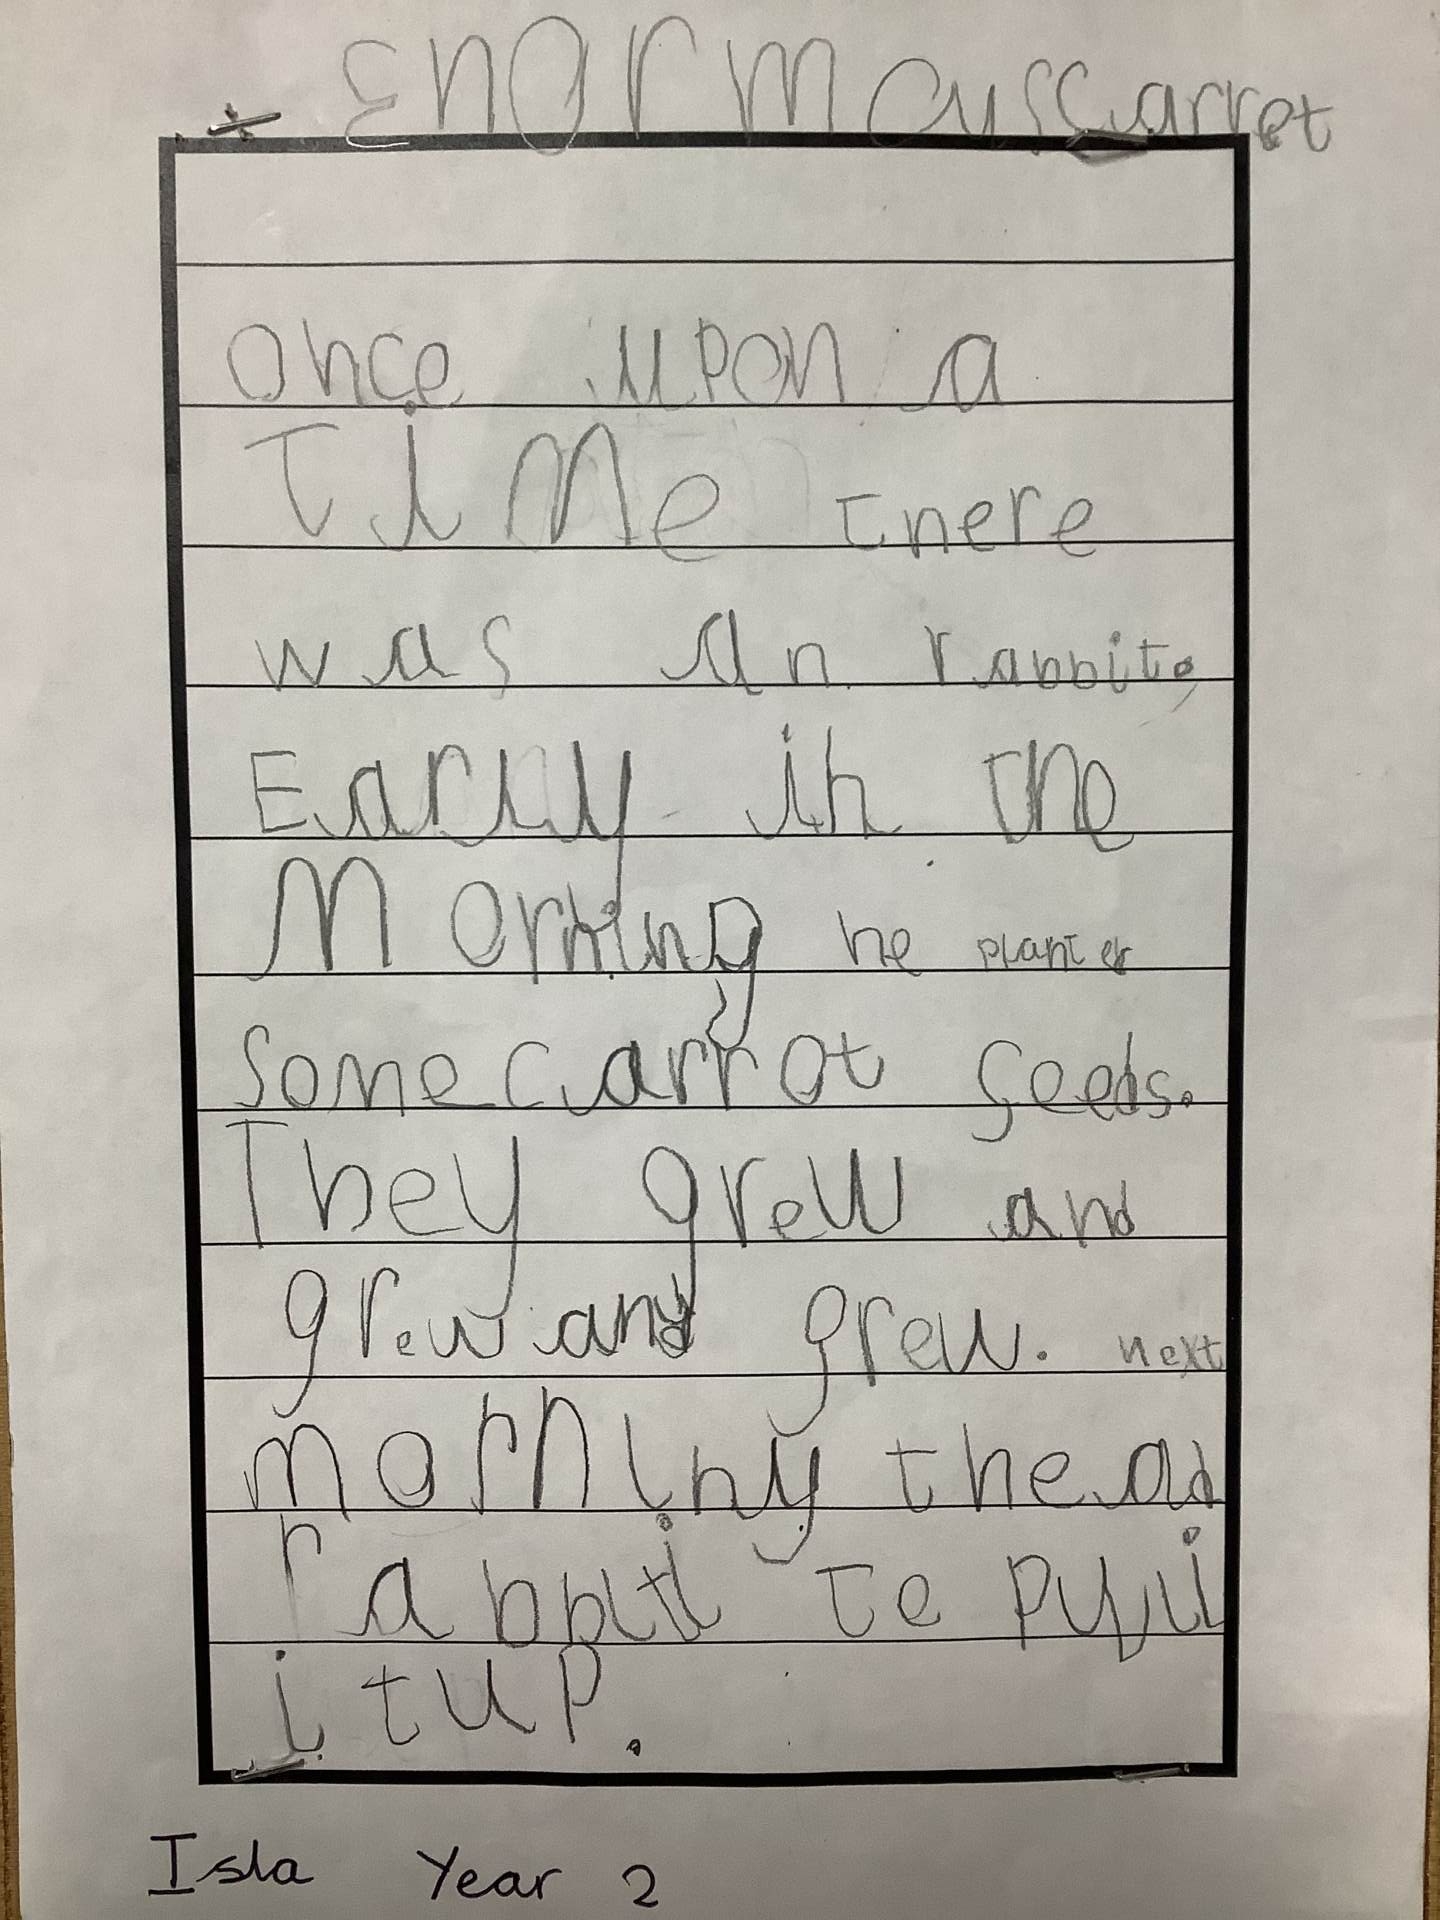 Enormouscarrot
once upon a
Time there
was an rabbit.
Early in the
Morning he planter
some carrot seeds.
They grew and
grew and grew. next
morning the ad
rabbit te pull
it up.
Isla Year 2